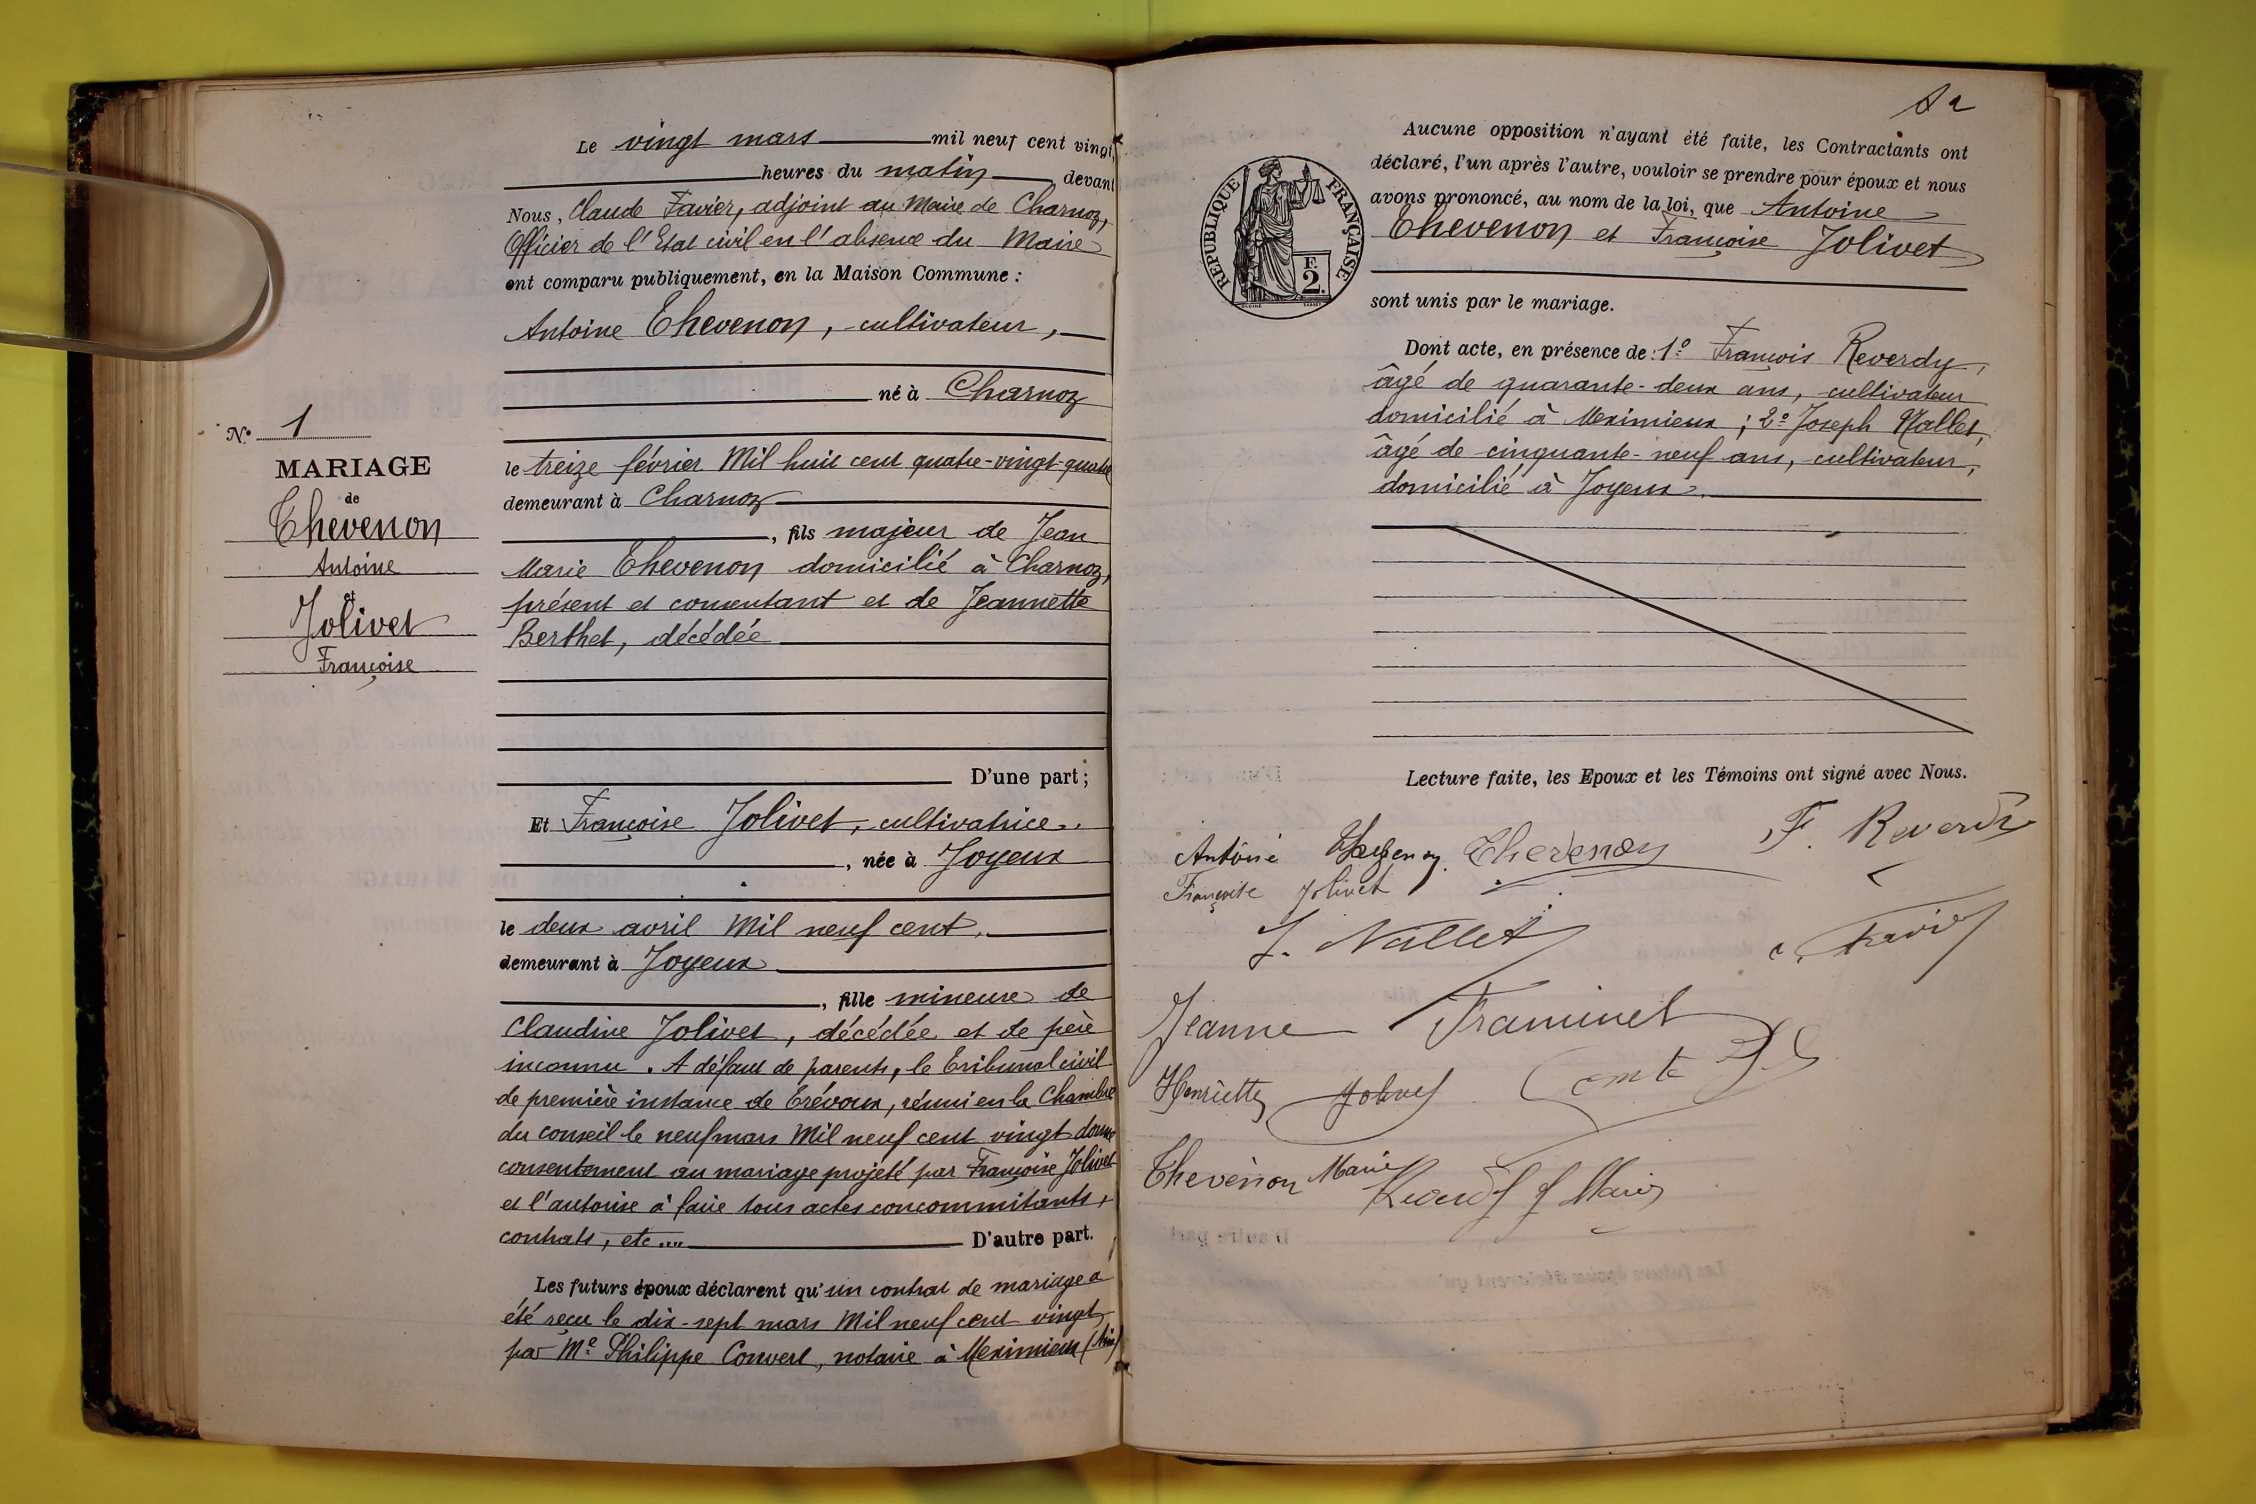 Le vingt mars mil neuf cent vingt
heures du matin devant
Nous, Claude Favier, adjoint au Maire de Charnoz,
Officier de l'Etat civil en l'absence du Maire
ont comparu publiquement, en la Maison Commune :
Antoine Thevenon, cultivateur,
né à Charnoz
N° 1
MARIAGE
de
Thevenon
Antoine
et
Jolivet
Françoise
le treize février Mil huit cent quatre-vingt-quatre
demeurant à Charnoz
, fils majeur de Jean
Marie Thevenon domicilié à Charnoz,
présent et consentant et de Jeannette
Berthet, décédée
D'une part ;
Et Françoise Jolivet, cultivatrice
, née à Joyeux
le deux avril Mil neuf cent,
demeurant à Joyeux
, fille mineure de
Claudine Jolivet, décédée et de père
inconnu. A défaut de parents, le Tribunal civil
de première instance de Trévoux, réuni en la Chambre
du conseil le neuf mars Mil neuf cent vingt donne
consentement au mariage projeté par Françoise Jolivet
et l'autorise à faire tous actes concommitants,
contrats, etc....
D'autre part.
Les futurs époux déclarent qu'un contrat de mariage a
été reçu le dix-sept mars Mil neuf cent vingt
par Me Philippe Convert, notaire à Meximieux (Ain)
Aucune opposition n'ayant été faite, les Contractants ont
déclaré, l'un après l'autre, vouloir se prendre pour époux et nous
avons prononcé, au nom de la loi, que Antoine
Thevenon et Françoise Jolivet
RÉPUBLIQUE FRANÇAISE
F.
2.
sont unis par le mariage.
Dont acte, en présence de : 1° François Reverdy,
âgé de quarante-deux ans, cultivateur
domicilié à Meximieux ; 2° Joseph Nallet,
âgé de cinquante-neuf ans, cultivateur,
domicilié à Joyeux.
Lecture faite, les Epoux et les Témoins ont signé avec Nous.
Antoine Thevenon Thevenon F. Reverdy
Françoise Jolivet
J. Nallet C. Favier
Jeanne Framinet
Henriette Jolivet Comte
Thevenon Marie